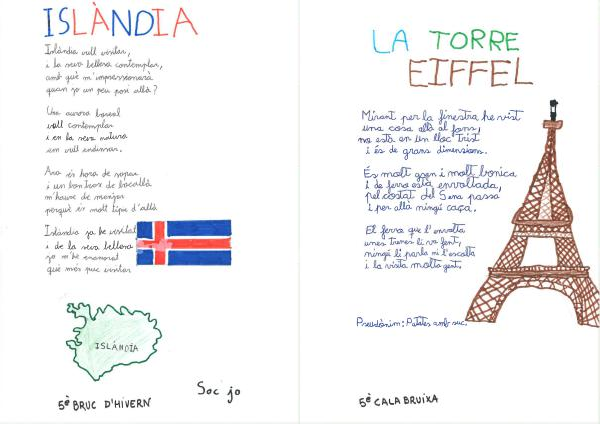 ISLÀNDIA
Islàndia vull visitar,
i la seva bellesa contemplar,
amb què m'impressionarà
quan jo un peu posi allà?
Una aurora boreal
vull contemplar
i en la seva natura
em vull endinsar.
Ara és hora de sopar
i un bon tros de bacallà
m'hauré de menjar
perquè és molt típic d'allà
Islàndia ja he visitat
i de la seva bellesa
jo m'he enamorat
que més puc visitar
ISLÀNDIA
Soc jo
5è BRUC D'HIVERN
LA TORRE
EIFFEL
Mirant per la finestra he vist
una cosa allà al fons,
no està en un lloc trist
i és de grans dimensions.
És molt gran i molt bonica
i de ferro està envoltada,
pel costat del Sena passa
i per allà ningú caça.
El ferro que l'envolta
unes trenes li va fent,
ningú li parla ni l'escolta
i la visita molta gent.
Pseudònim: Patates amb suc.
5è CALABRUIXA